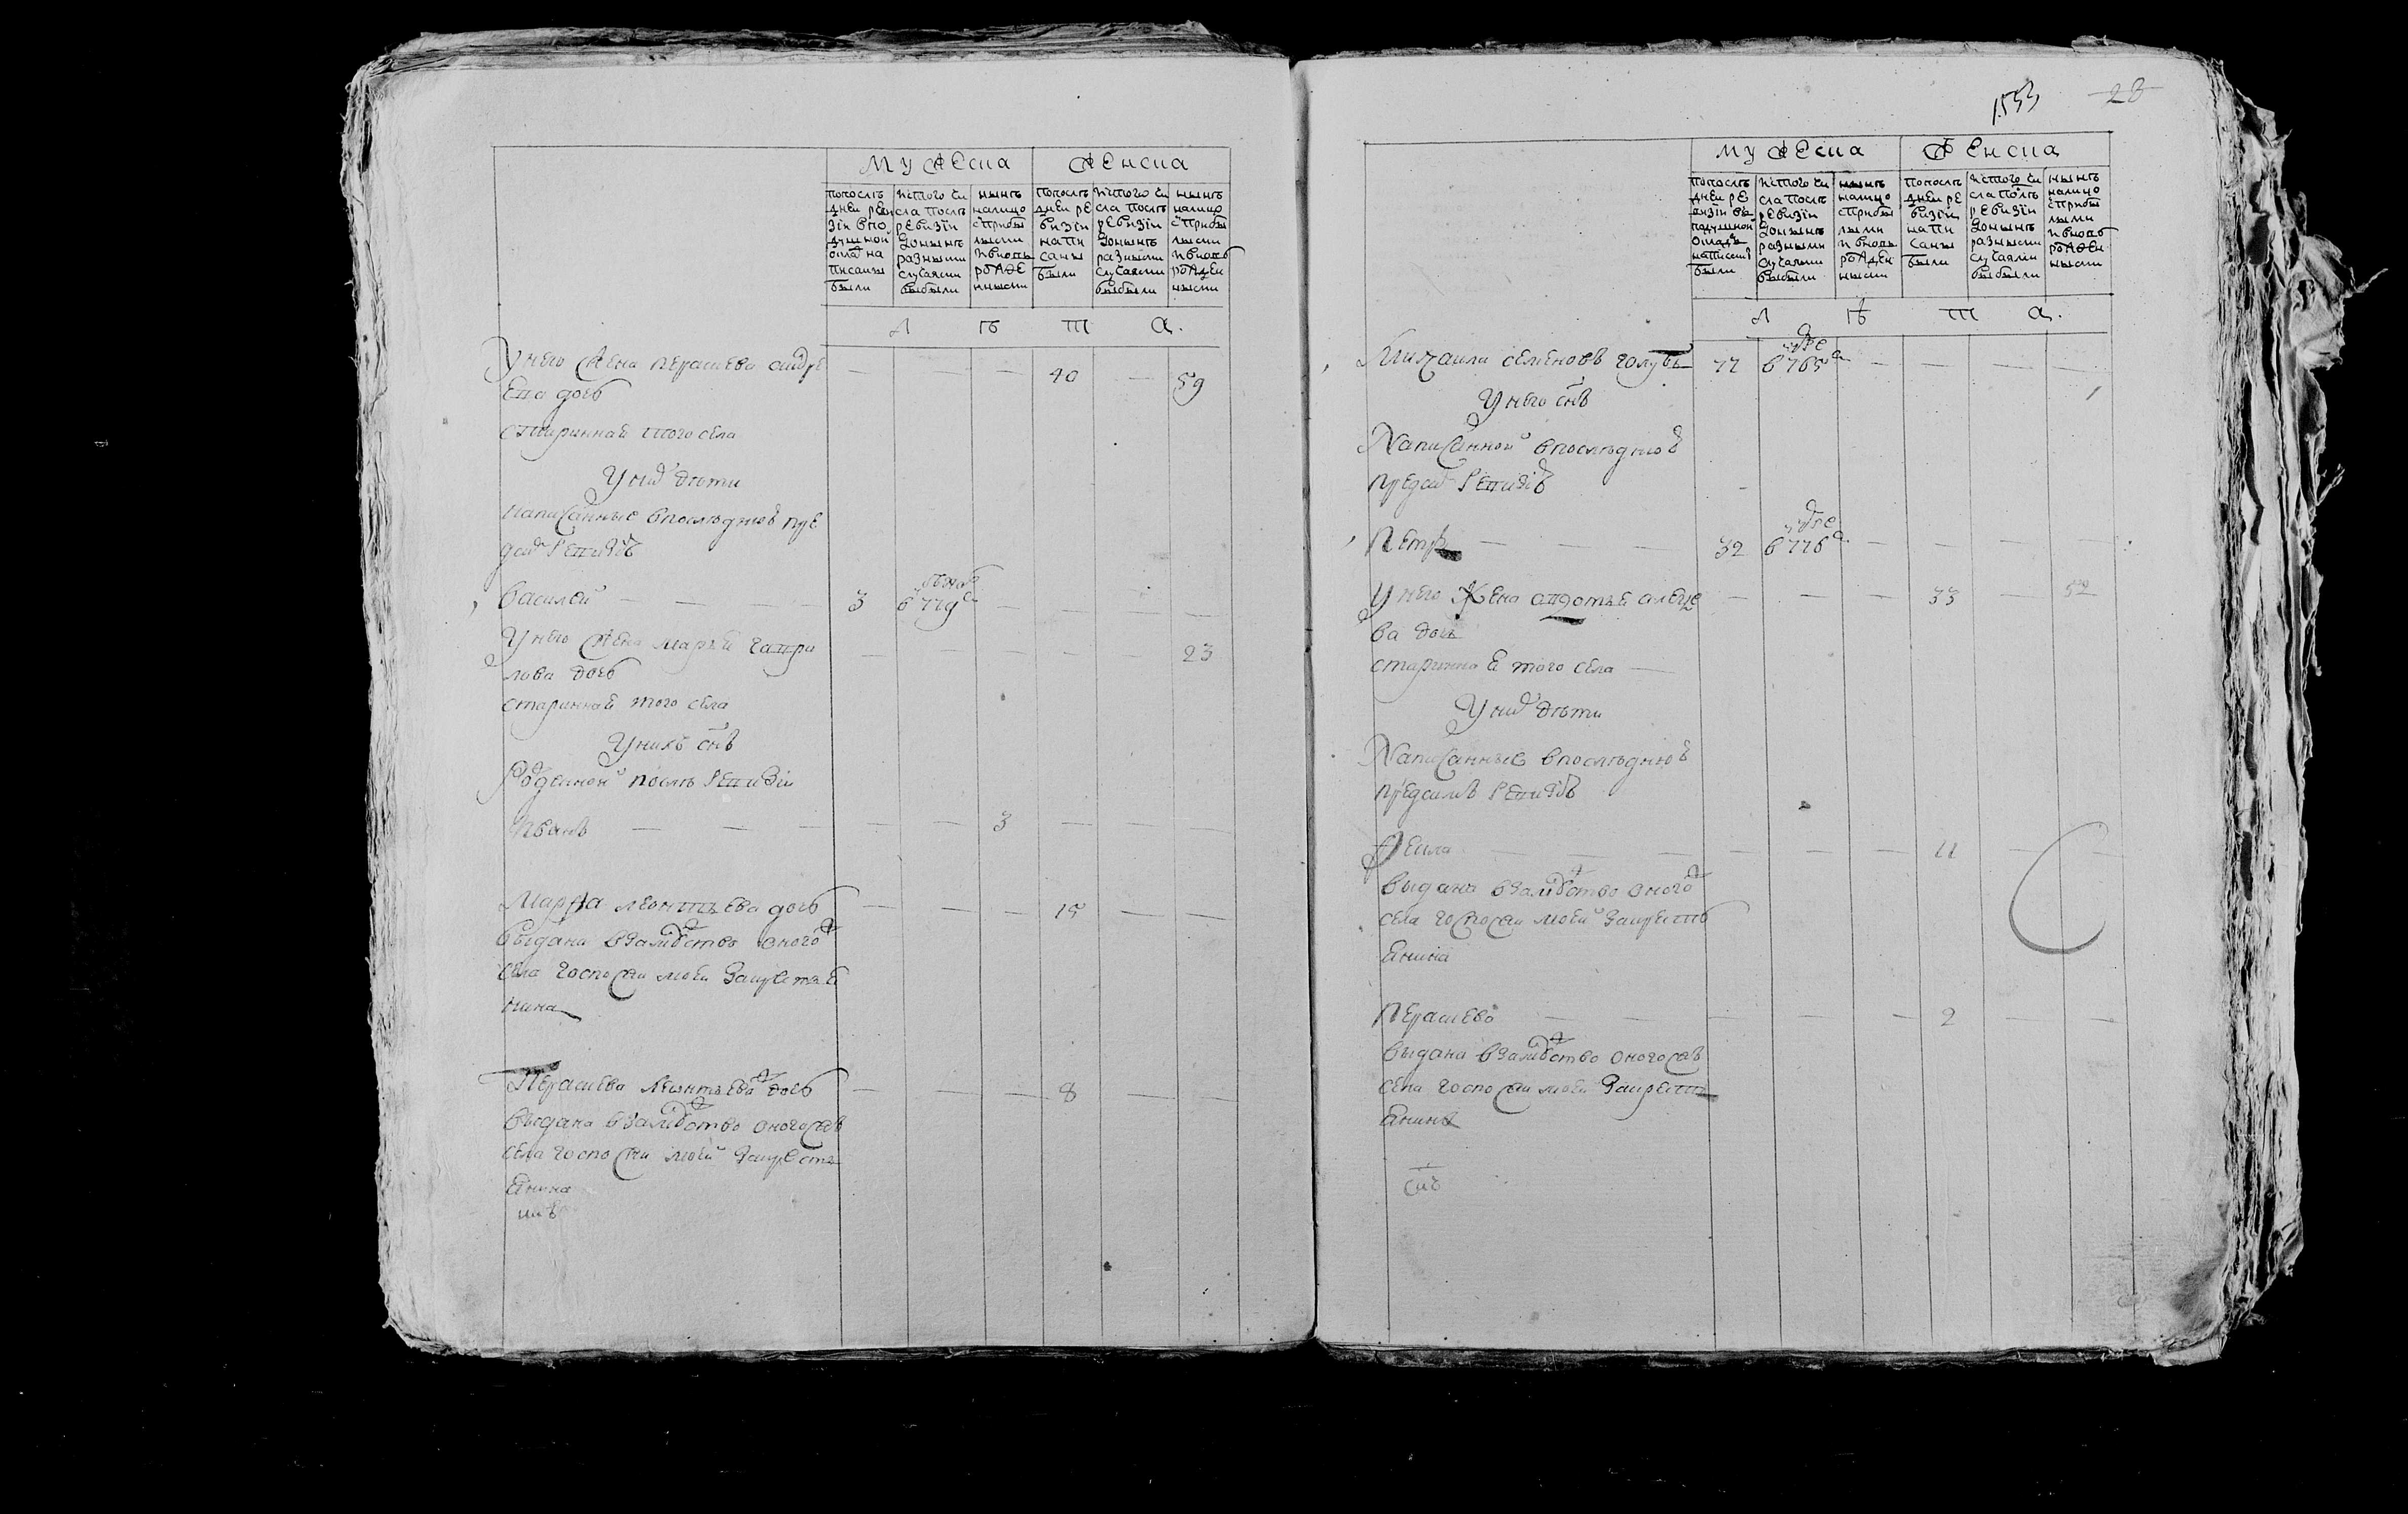 мужеска
женска
попослѣ
дней реви
зіи в по
душной
окладъ на
писаны
были
ис того чи
сла послѣ
ревизіи
доныне
разными
случаями
выбыли
нынѣ
налицо
с прибы
лыми
и вновь
рожде
нными
попослѣ
дней ре
визіи
напи
саны
были
ис того чи
сла послѣ
ревизіи
доныне
разными
случаями
выбыли
нынѣ
налицо
с прибы
лыми
и вновь
рожден
ными
л ѣ т а.
У него жена Перасмева андре
ева дочь 40 59
стариннай того села
У них дѣти
написанные в последней пре
д сим ревизіѣ
Василей 3 в 779
У него жена марья гаври
лова дочь 23
стариннай того села
У нихъ снъ
Рожденной послѣ ревизіи
Иванъ 3
Марфа леонтьева дочь 15
выдана в замужство оного ж
села господи моей за кресть
нина
Леонтьева дочь 8
выдана в замужство оного ж
села господи моей за кресть
янина
1533
28
мужеска
женска
попослѣ
дней ре
визіи в
подушной
окладъ
написаны
были
ис того чи
сла послѣ
ревизіи
доныне
разными
случаями
выбыли
нынѣ
налицо
с прибы
лыми
и вновь
рожден
ными
попослѣ
дней ре
визіи
напи
саны
были
ис того чи
сла послѣ
ревизіи
доныне
разными
случаями
выбыли
нынѣ
налицо
с прибы
лыми
и вновь
рожден
ными
л ѣ т а.
Михаила семеновъ голубь 77 в 765
У него снъ
Написанной в последней
пред сим ревизіѣ
Петръ 32 в 776
У него жена авдотья алексе
ва дочь 33 52
старинная того села
У них дѣти
Написанные в последней
пред симъ ревизіѣ
Фекла 11
выдана в замужство оного ж
села господи моей за кресть
янина
2
выдана в замужство оного ж
села господи моей за кресть
янина